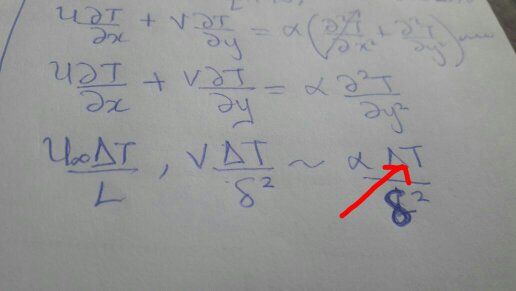 u∂T/∂x + v∂T/∂y = α(∂²T/∂x² + ∂²T/∂y²)
u∂T/∂x + v∂T/∂y = α ∂²T/∂y²
U∞ΔT/L , v ΔT/δ² ~ α ΔT/δ²